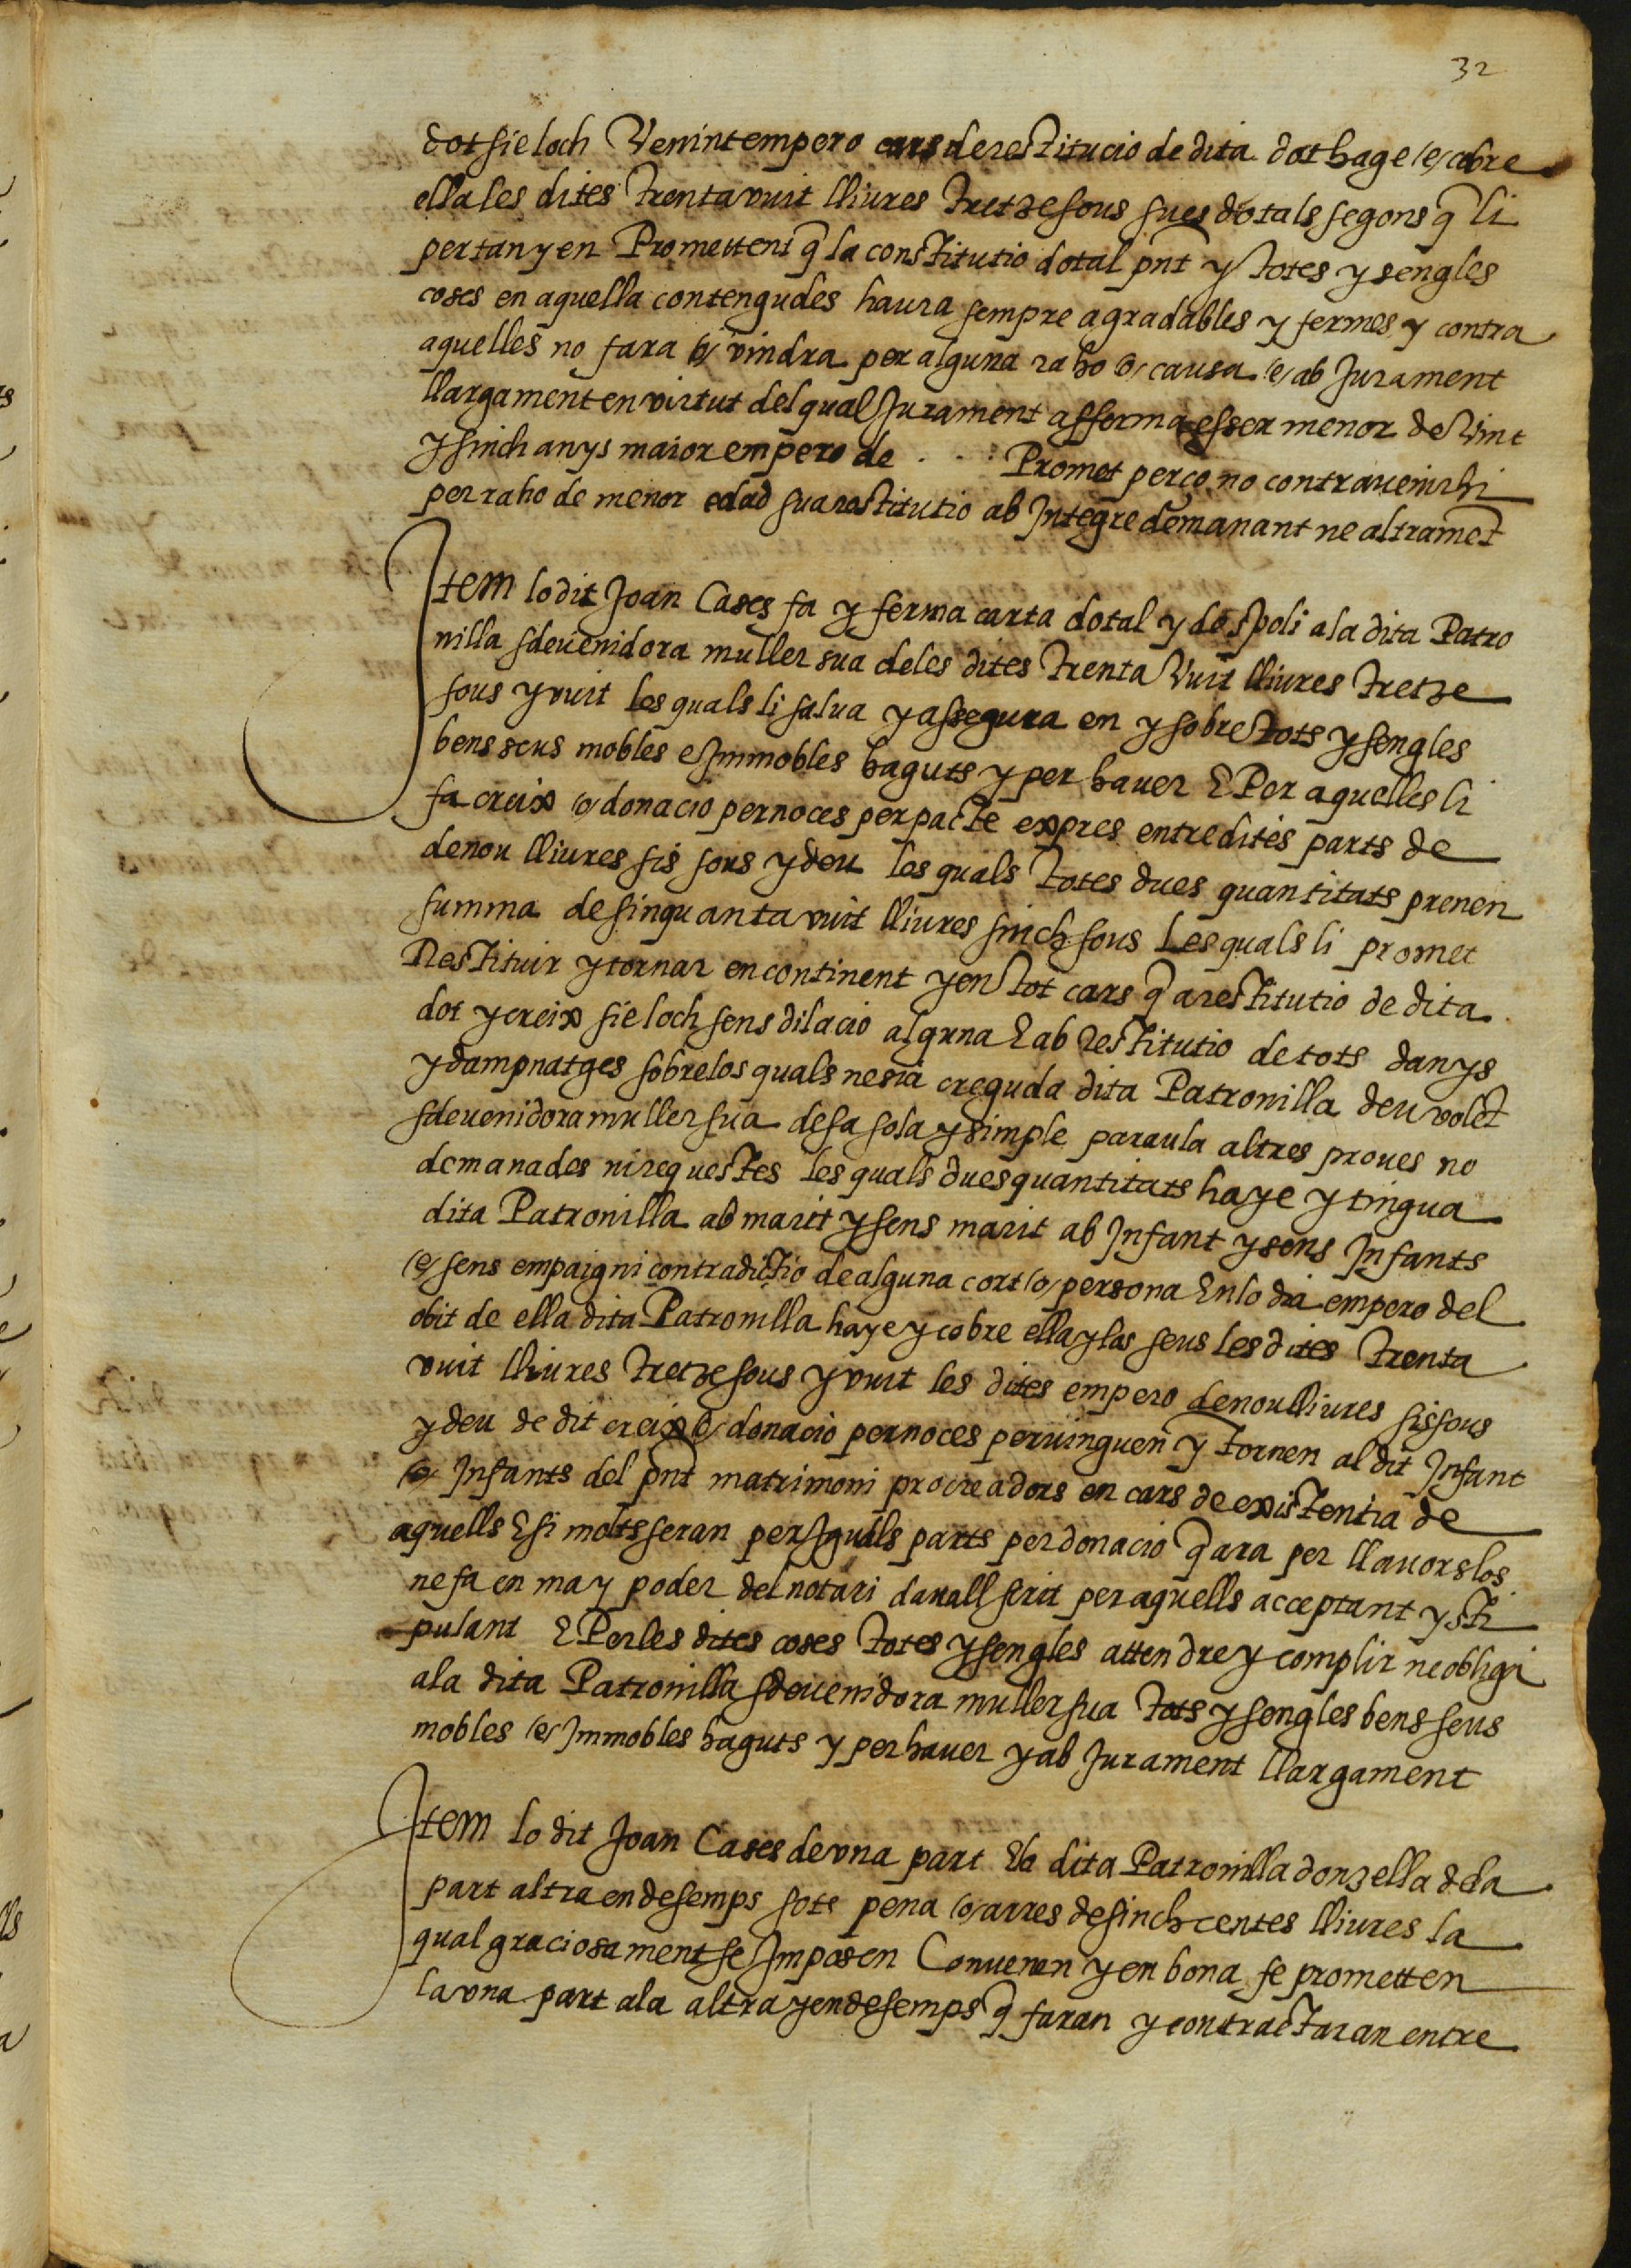 32
dot sie loch Venint empero cars de restitucio de dita dot hage /e/ cobre
ella les dites trenta vuit lliures tretze sous sues dotals segons q̃ li
pertanyen Promettent q̃ la constitutio dotal pñt y totes y sengles
coses en aquella contengudes haura sempre agradables y fermes y contra
aquelles no fara /o/ vindra per alguna raho /o/ causa /e/ ab Jurament
llargament en virtut del qual Jurament afferma esser menor de Vint
y sinch anys maior empero de . . . Promet perço no contravenirhi
per raho de menor edad sua restitutio ab Integre demanant ne altramẽt
Item lo dit Joan Cases fa y ferma carta dotal y de spoli a la dita Patro
nilla sdevenidora muller sua de les dites trenta Vuit lliures tretze
sous y vuit les quals li salva y assegura en y sobre tots y sengles
bens seus mobles e Immobles haguts y per haver E Per aquelles li
fa creix /o/ donacio per noces per pacte expres entre dites parts de
denou lliures sis sous y deu les quals totes dues quantitats prenen
summa de sinquanta vuit lliures sinch sous Les quals li promet
Restituir y tornar encontinent y en tot cars q̃ a restitutio de dita
dot y creix sie loch sens dilacio alguna E ab restitutio de tots danys
y dampnatges sobre los quals ne sia creguda dita Patronilla deu volẽt
sdevenidora muller sua de sa sola y simple paraula altres proves no
demanades ni requestes les quals dues quantitats haye y tingua
dita Patronilla ab marit y sens marit ab Infant y sens Infants
/e/ sens empaig ni contradictio de alguna cort /o/ persona En lo dia empero del
obit de ella dita Patronilla haye y cobre ella y los seus les dites trenta
vuit lliures tretze sous y vuit les dites empero denou lliures sis sous
y deu de dit creix /o/ donacio per noces pervinguen y tornen al dit Infant
/o/ Infants del pñt matrimoni procreadors en cars de existentia de
aquells E si molts seran per Iguals parts per donacio q̃ ara per llavors los
ne fa en ma y poder del notari davall scrit per aquells acceptant y sti
pulant E Per les dites coses totes y sengles attendre y complir ne obliga
a la dita Patronilla sdevenidora muller sua tots y sengles bens seus
mobles /e/ Immobles haguts y per haver y ab Jurament llargament
Item lo dit Joan Cases de una part E la dita Patronilla donzella de la
part altra endesemps sots pena /o/ arres de sinch centes lliures la
qual graciosament se Imposen Convenen y en bona fe prometten
la una part a la altra y endesemps q̃ faran y contractaran entre